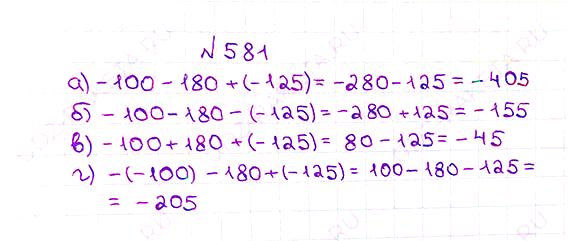 №581
а) -100 - 180 + (-125) = -280 - 125 = -405
б) -100 - 180 - (-125) = -280 + 125 = -155
в) -100 + 180 + (-125) = 80 - 125 = -45
г) -(-100) - 180 + (-125) = 100 - 180 - 125 =
= -205